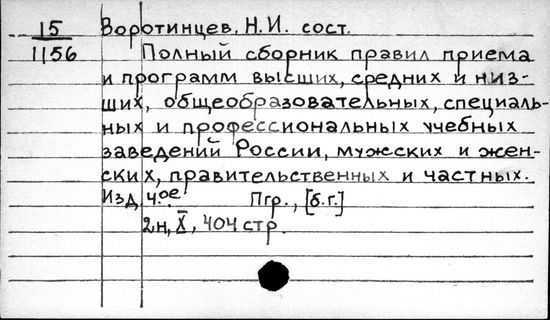 15 Воротинцев, Н.И. сост.
1156 Полный сборник правил приема
и программ высших, средних и низ-
ших, общеобразовательных, специаль-
ных и профессиональных учебных
заведений России, мужских и жен-
ских, правительственных и частных.
Изд. 4.ое Пгр., [б.г.]
2н, X, 404 стр.